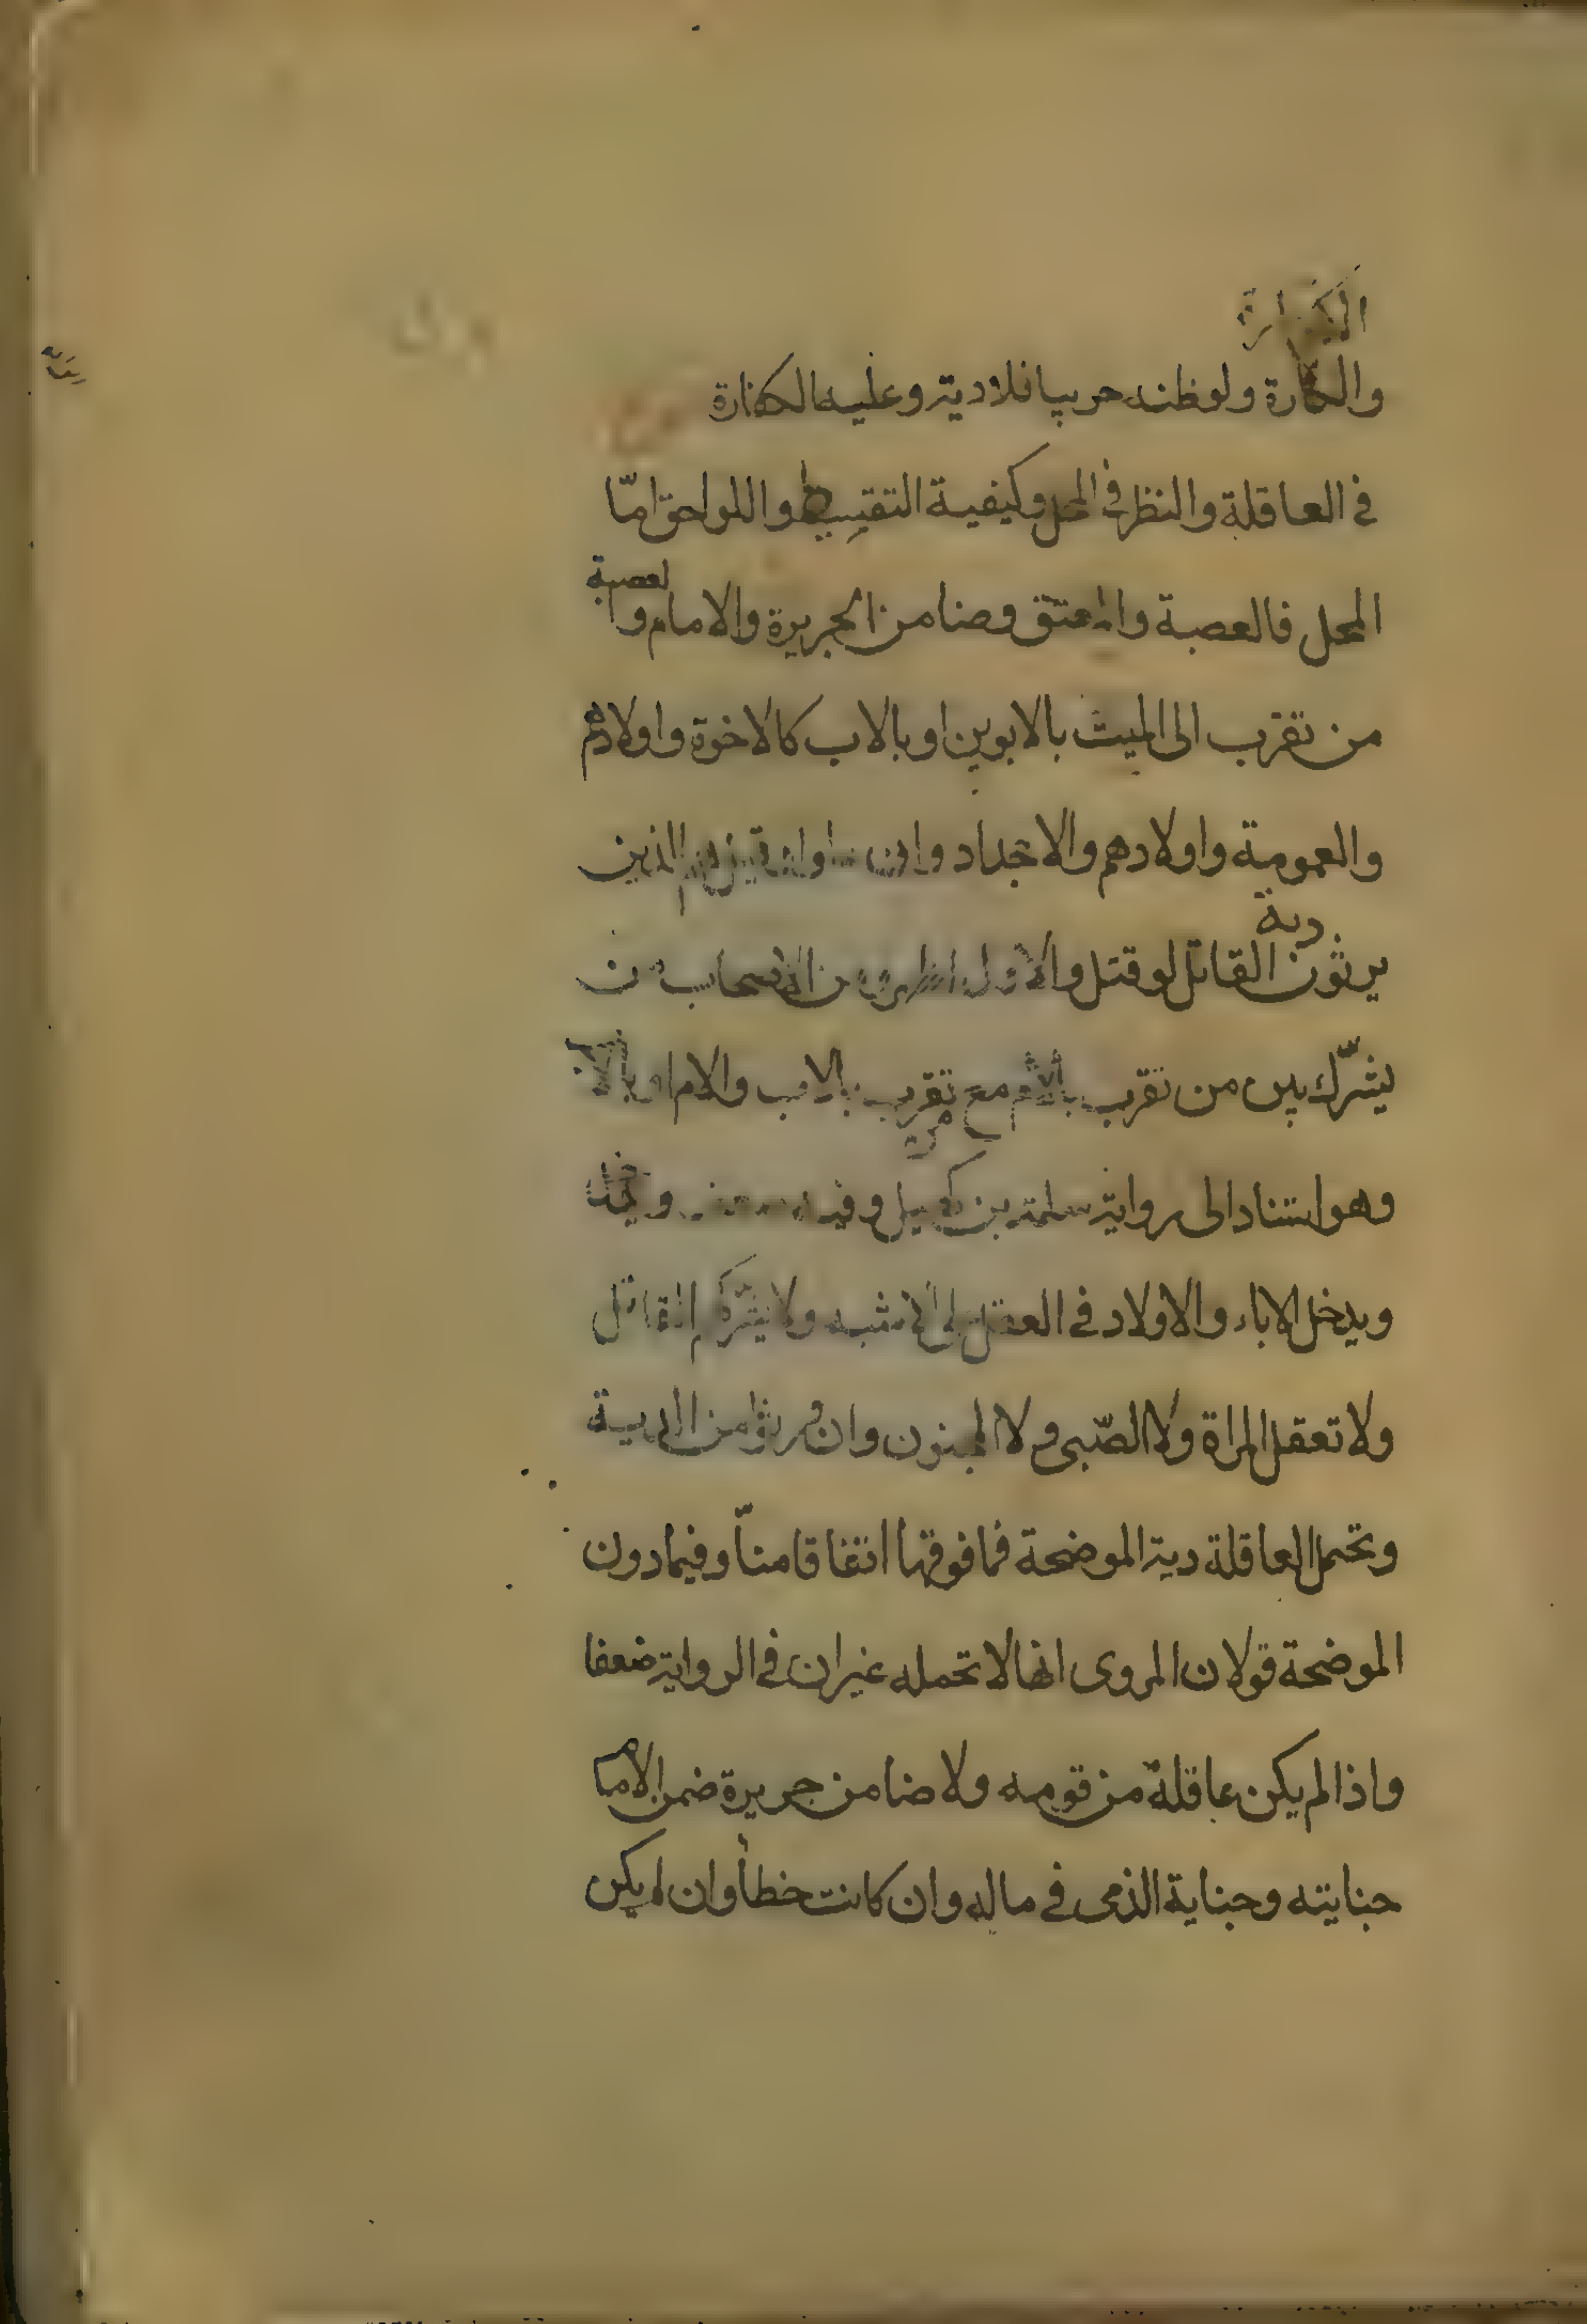 الكفارة
والكفارة ولو ظنه حربيا فلا دية وعليه الكفارة
في العاقلة والنظر في المحل وكيفية التقسيط واللواحق امّا
المحل فالعصبة والمعتق وضامن الجريرة والامام والعصبة
من تقرب الى الميث بالابوين او بالاب كالاخوة واولادهم
والعمومة واولادهم والاجداد وان الذين
يرثون دية القاتل لو قتل والاول اظهر ومن الاصحاب من
يشرّك بين من تقرب بالأم مع من تقرب بالاب والام او بالاب
وهو استناد الى رواية سلمة بن كهيل وفيه
ويدخل الاباء والاولاد في العقل على الاشبه ولا يشركهم القاتل
ولا تعقل المراة ولا الصّبي ولا المجنون وان ورثوا من الدية
وتحمل العاقلة دية الموضحة فما فوقها اتفاقا منّا وفيما دون
الموضحة قولان المروى انها لا تحمله غير ان في الرواية ضعفا
واذا لم يكن عاقلة من قومه ولا ضامن جريرة ضمن الامام
جنايته وجناية الذمى في ماله وان كانت خطأ وان لم يكن